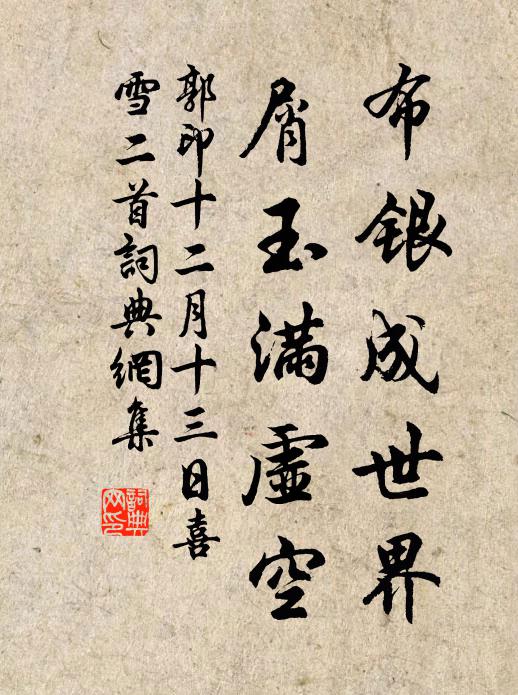 布銀成世界
屑玉滿虛空
郭印十二月十三日喜
雪二首詞典網集
詞典
网印